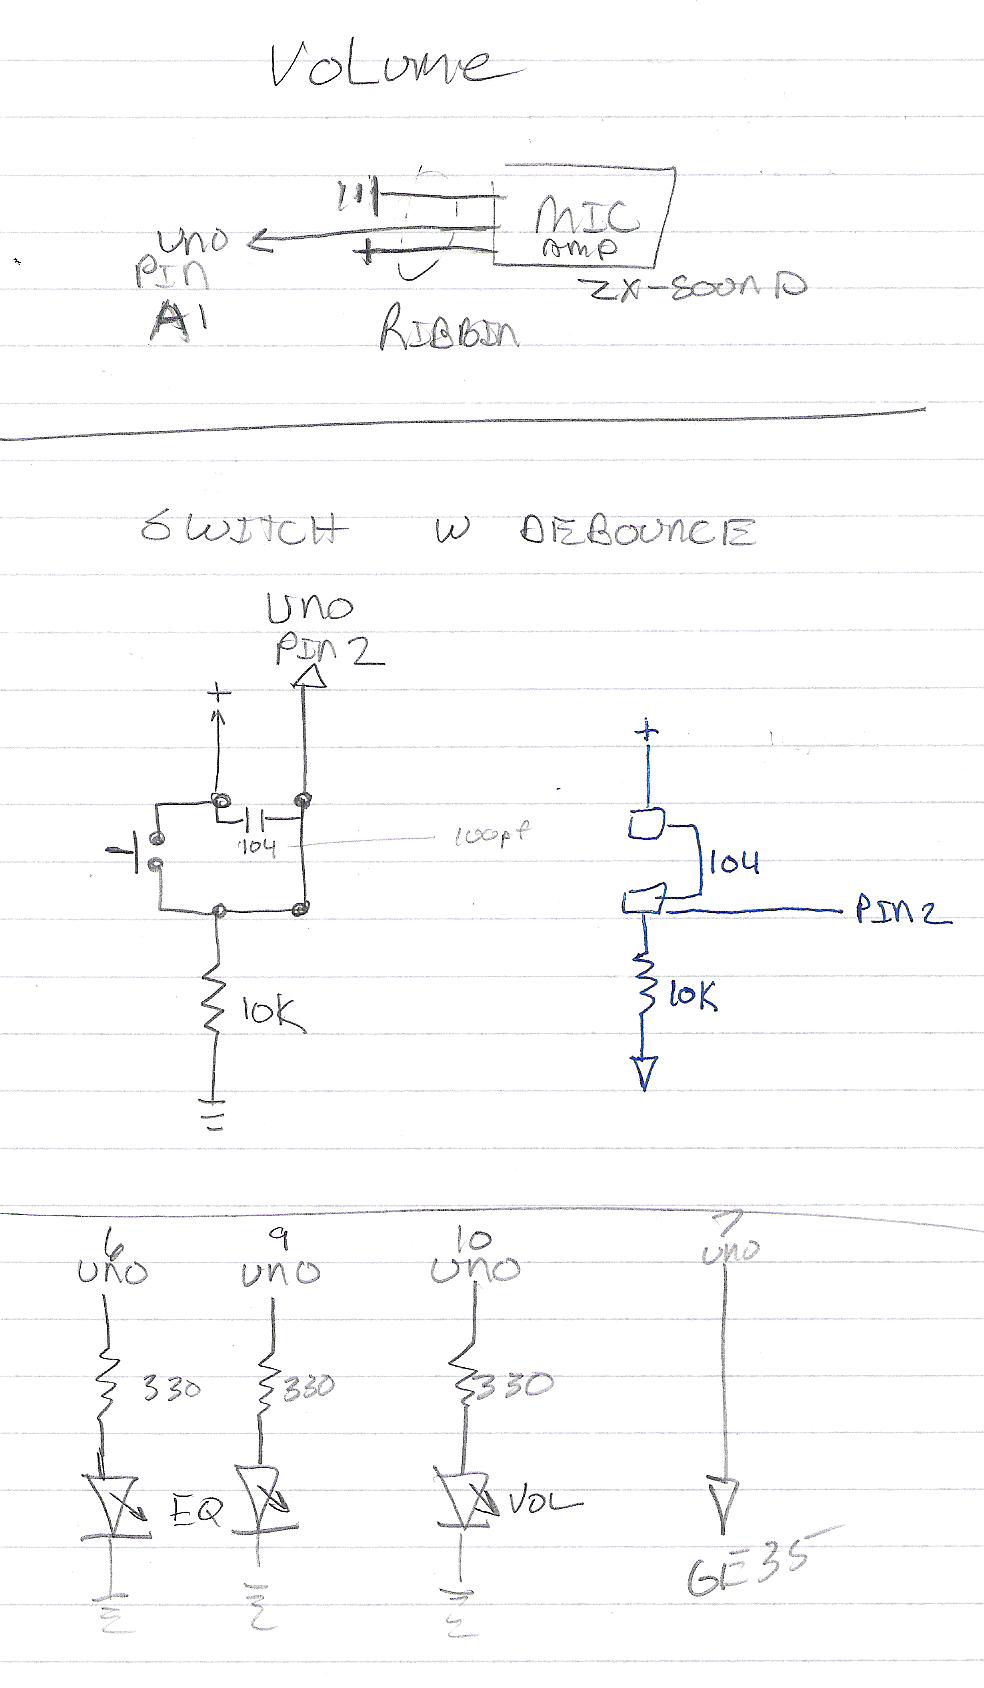 VOLUME
MIC
AMP
UNO
PIN
A1
ZX-SOUND
RIBBIN
SWITCH W DEBOUNCE
UNO
PIN 2
+
+
104
100pf
104
PIN 2
10K
10K
6
UNO
9
UNO
10
UNO
7
UNO
330
330
330
EQ
VOL
GE35